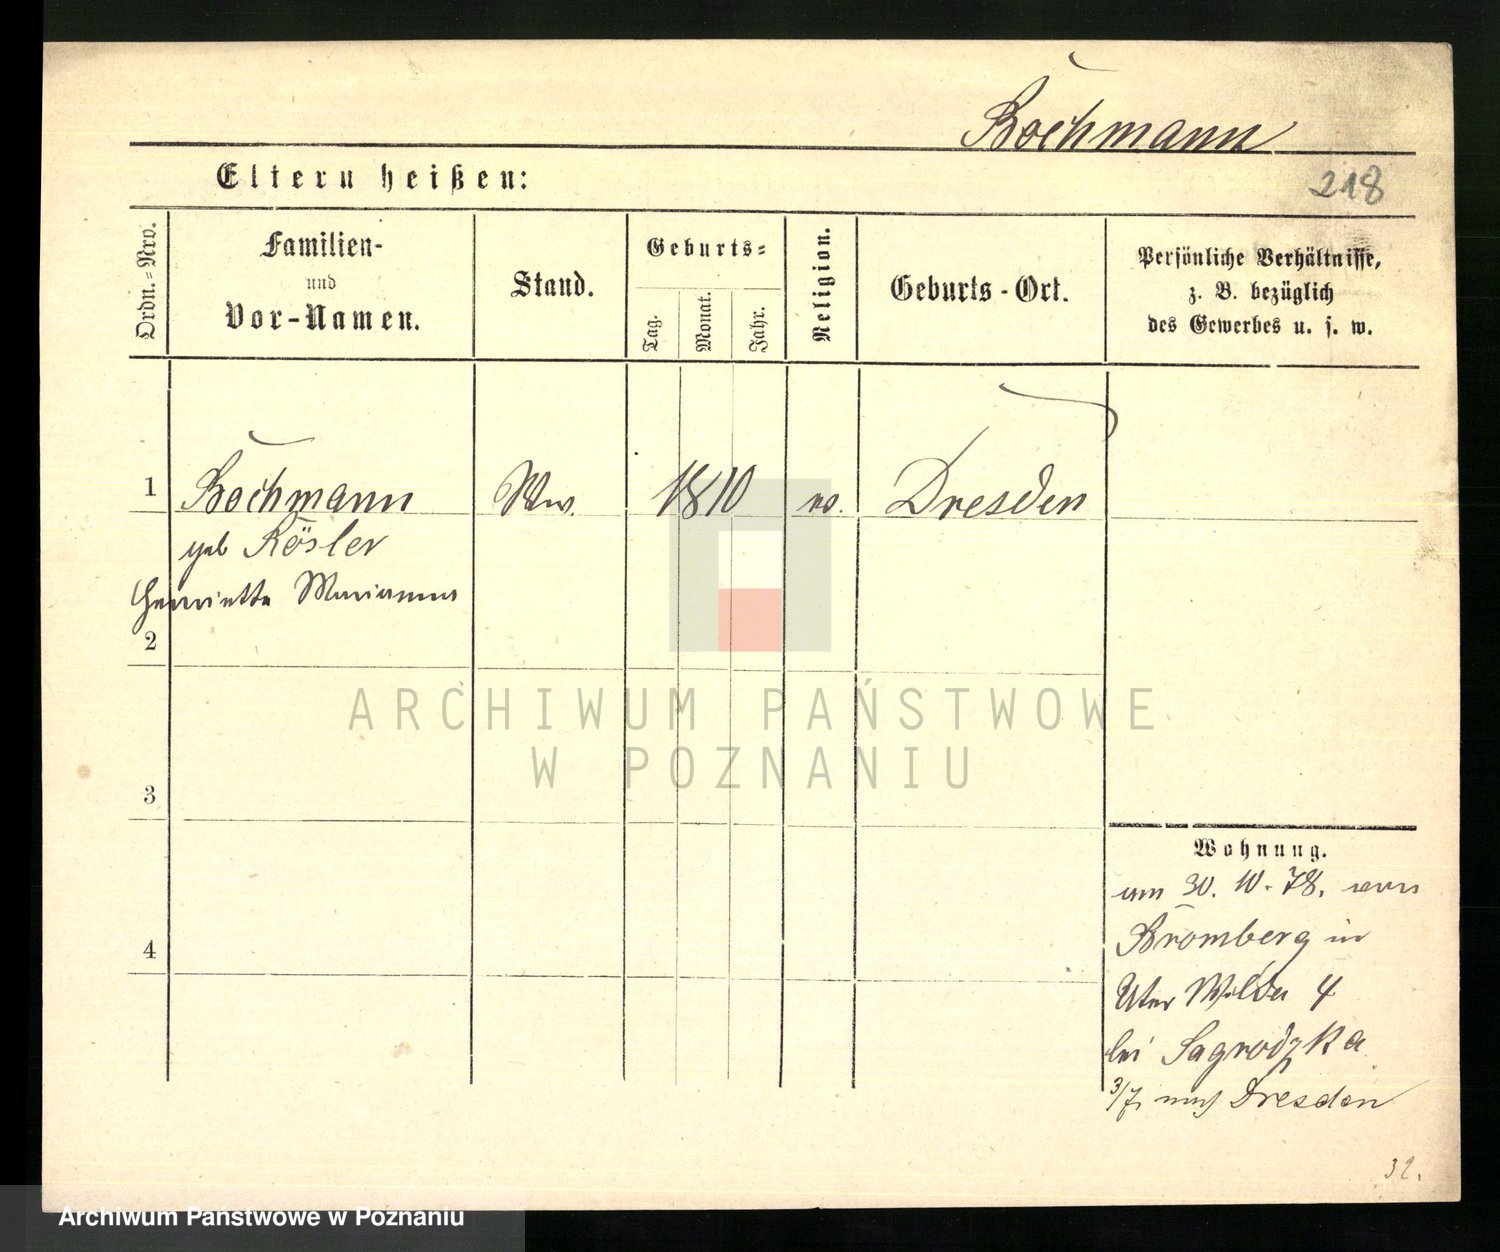 Bochmann
Eltern heißen:
218
Ordn.=Nro.
Familien-
und
Vor-Namen.
Stand.
Geburts=
Tag.
Monat.
Jahr.
Religion.
Geburts-Ort.
Persönliche Verhältnisse,
z. B. bezüglich
des Gewerbes u. s. w.
1 Bochmann Ww. 1810 ev. Dresden
geb Rösler
Henriette Marianna
2
3
4
ARCHIWUM PAŃSTWOWE
W POZNANIU
Wohnung.
am 30. 10. 78. von
Bromberg in
Uter Wilda 4
bei Sagrodzka
3/7. nach Dresden
32.
Archiwum Państwowe w Poznaniu